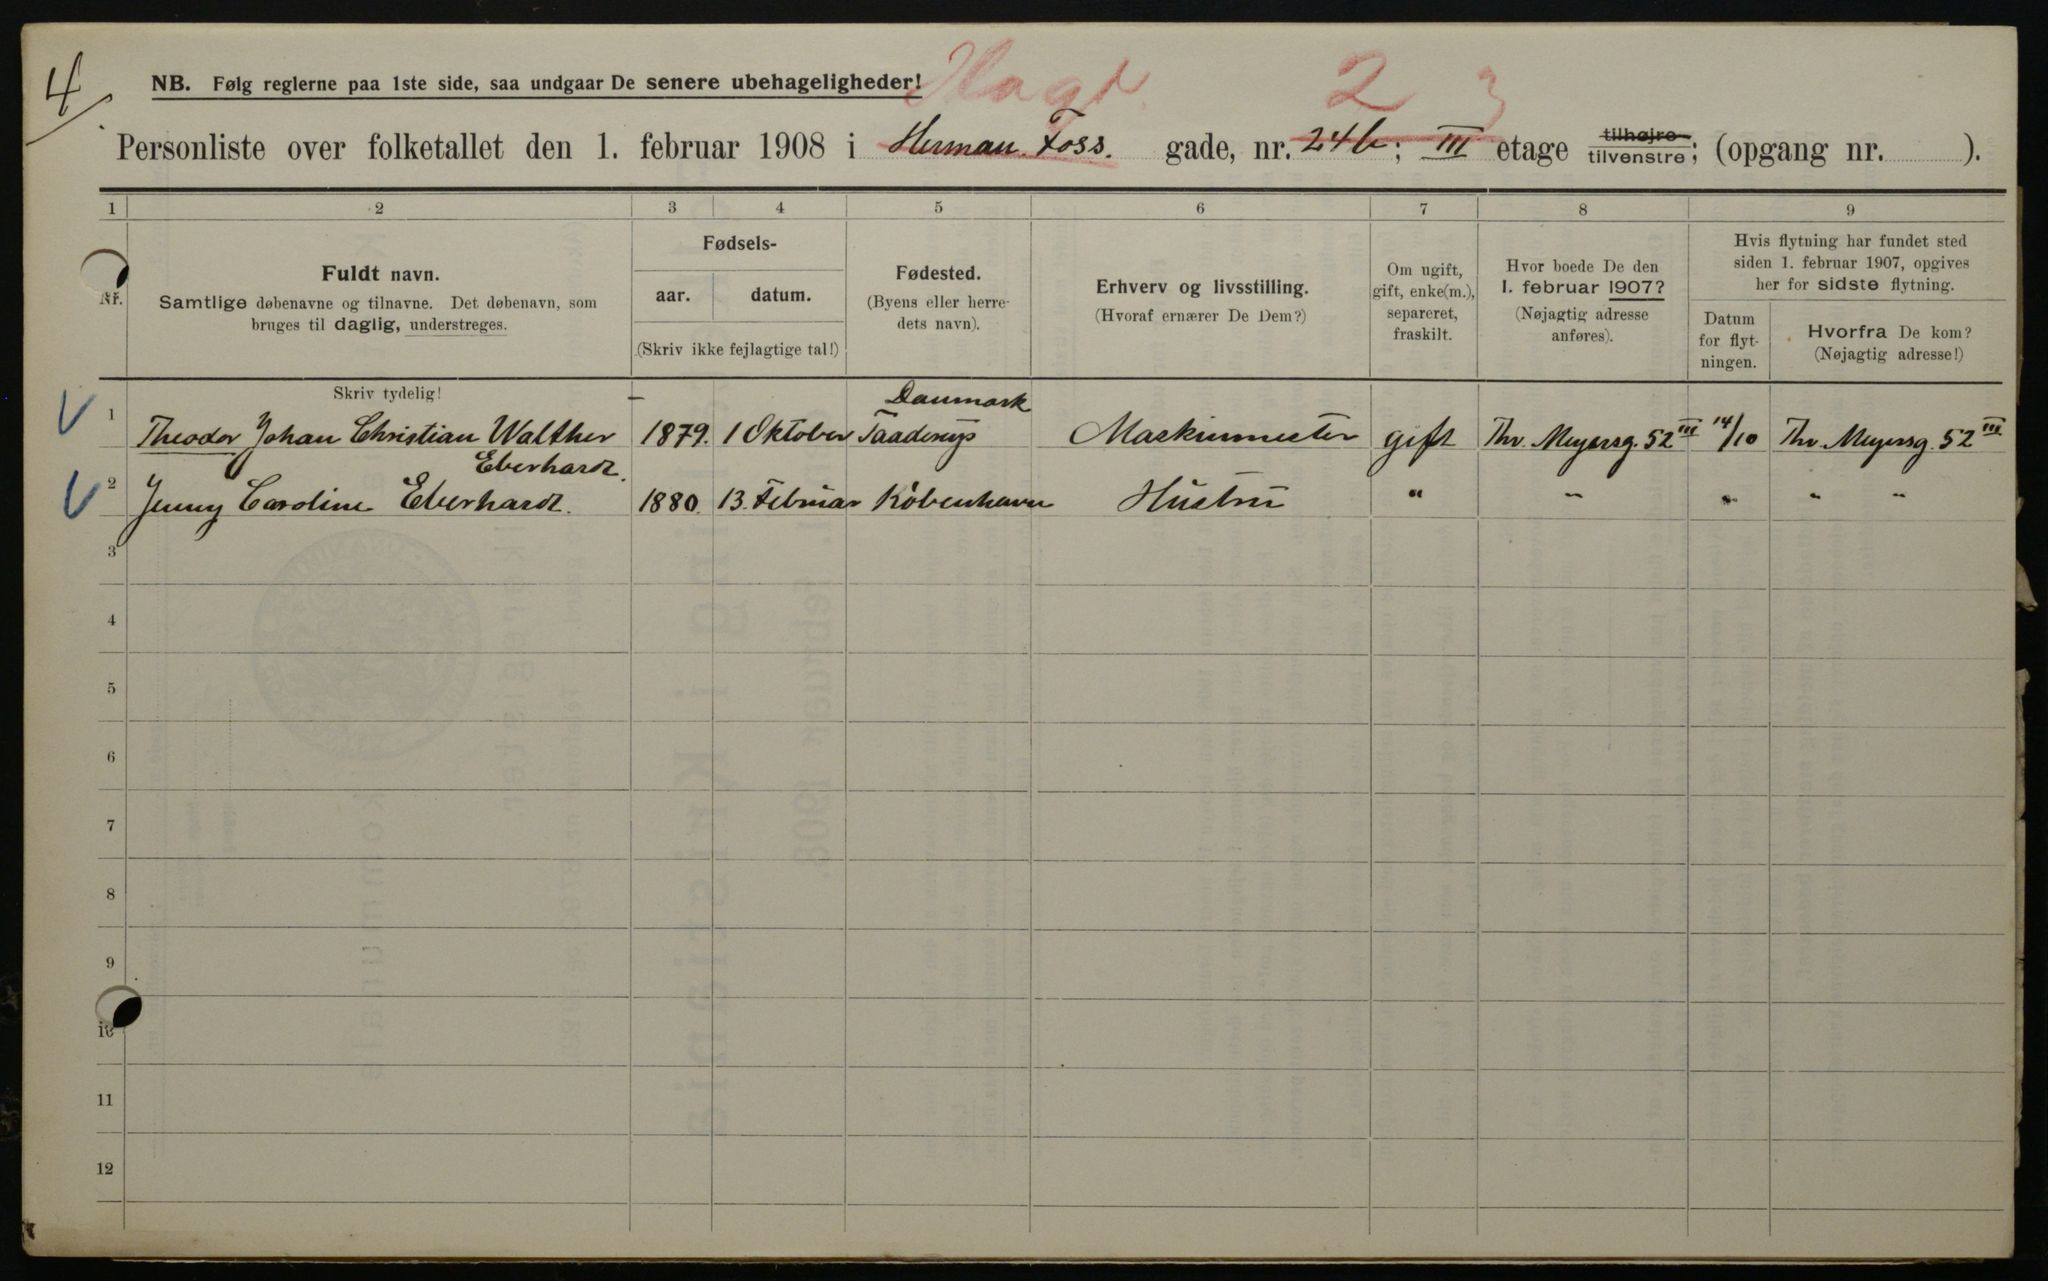 4
NB. Følg reglerne paa 1ste side, saa undgaar De senere ubehageligheder!
2 3
Personliste over folketallet den 1. februar 1908 i Herman Foss. gade, nr. 24b; III etage tilhøjre tilvenstre; (opgang nr. ).
1 2 3 4 5 6 7 8 9
Nr.
Fuldt navn.
Samtlige døbenavne og tilnavne. Det døbenavn, som
bruges til daglig, understreges.
Fødsels-
aar. datum.
(Skriv ikke fejlagtige tal!)
Fødested.
(Byens eller herre-
dets navn).
Erhverv og livsstilling.
(Hvoraf ernærer De Dem?)
Om ugift,
gift, enke(m.),
separeret,
fraskilt.
Hvor boede De den
1. februar 1907?
(Nøjagtig adresse
anføres).
Hvis flytning har fundet sted
siden 1. februar 1907, opgives
her for sidste flytning.
Datum
for flyt-
ningen.
Hvorfra De kom?
(Nøjagtig adresse!)
Skriv tydelig!
Danmark
1 Theodor Johan Christian Walther 1879. 1 Oktober Taaderup Maskinmester gift Thv. Meyersg. 52 III 14/10 Thv. Meyersg. 52 III
Eberhardt.
2 Jenny Caroline Eberhardt. 1880. 13. Februar København Hustru " " " " "
3
4
5
6
7
8
9
10
11
12